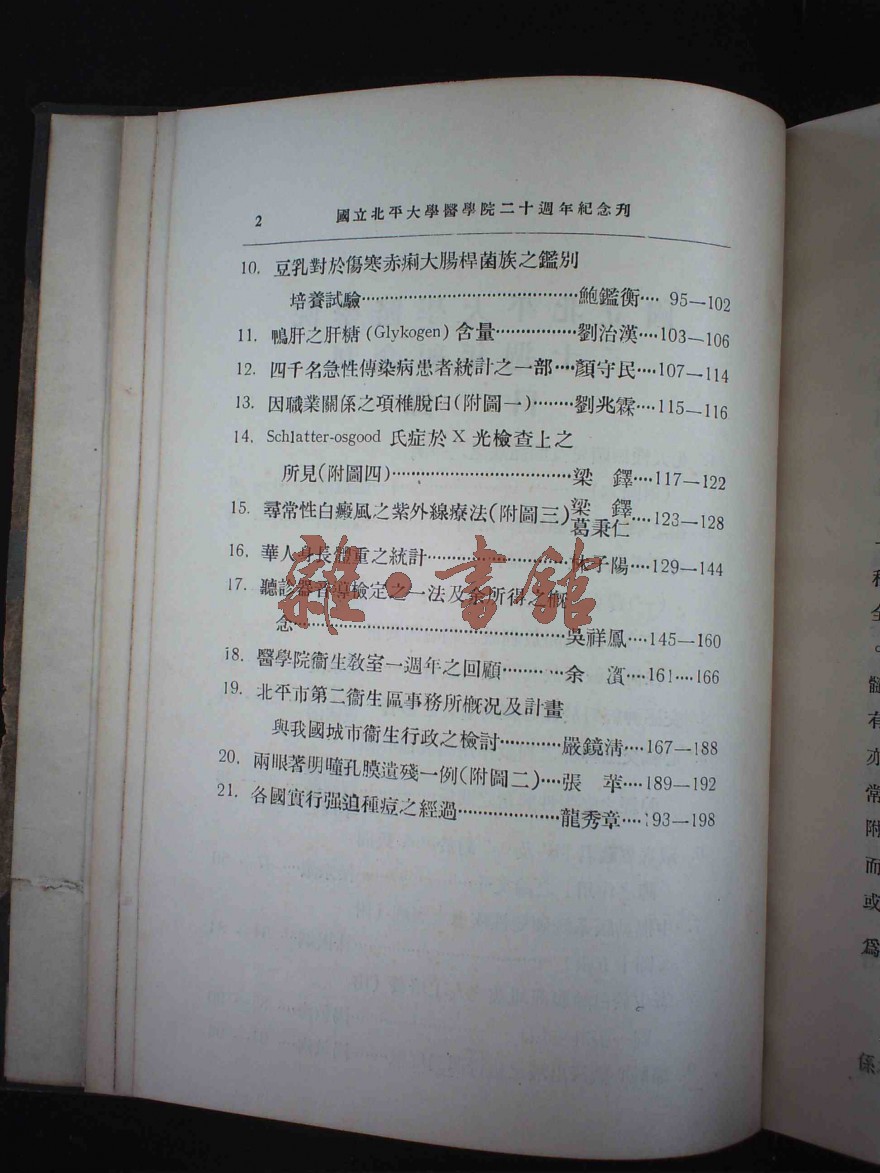 2 國立北平大學醫學院二十週年紀念刋
10. 豆乳對於傷寒赤痢大腸桿菌族之鑑別
培養試驗⋯⋯⋯⋯⋯⋯⋯⋯⋯⋯⋯⋯鮑鑑衡⋯· 95—102
11. 鴨肝之肝糖 (Glykogen) 含量⋯⋯⋯⋯⋯劉治漢⋯·103—106
12. 四千名急性傳染病患者統計之一部⋯·顏守民⋯·107—114
13. 因職業關係之項椎脫臼(附圖一)⋯⋯⋯劉兆霖⋯·115—116
14. Schlatter-osgood 氏症於 X 光檢查上之
所見(附圖四)⋯⋯⋯⋯⋯⋯⋯⋯⋯⋯⋯梁 鐸⋯·117—122
15. 尋常性白癜風之紫外線療法(附圖三)梁 鐸
葛秉仁⋯·123—128
16. 華人身長體重之統計⋯⋯⋯⋯⋯⋯⋯⋯林子陽⋯·129—144
17. 聽診器音導檢定之一法及余所得之概
念⋯⋯⋯⋯⋯⋯⋯⋯⋯⋯⋯⋯⋯⋯⋯⋯吳祥鳳⋯·145—160
18. 醫學院衞生敎室一週年之回顧⋯⋯⋯余 濱⋯·161⋯·166
19. 北平市第二衞生區事務所概况及計畫
與我國城市衞生行政之檢討⋯⋯⋯⋯嚴鏡淸⋯·167—188
20. 兩眼著明瞳孔膜遺殘一例(附圖二)⋯·張 苹⋯·189—192
21. 各國實行强迫種痘之經過⋯⋯⋯⋯⋯⋯龍秀章⋯·193—198
雜·書館
全
。
髓
有
亦
常
附
而
或
爲
係